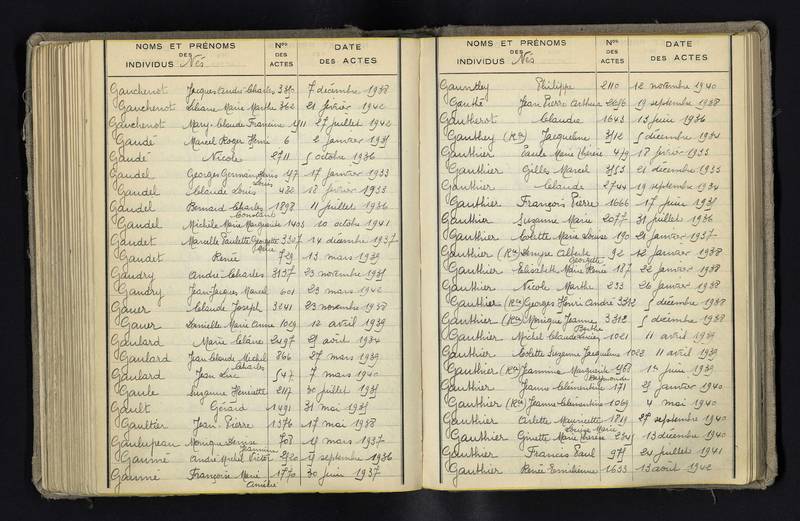 NOMS ET PRÉNOMS Nos DATE
DES DES
INDIVIDUS Nés ACTES DES ACTES
Gauchenot Jacques André Charles 3850 7 décembre 1938
Gauchenot Liliane Marie Marthe 362 21 février 1942
Gauchenot Mary-Claude Francine 1411 27 juillet 1942
Gaudé Marcel Roger Henri 6 2 janvier 1935
Gaudé Nicole 2711 5 octobre 1936
Gaudel Georges Germain Louis 147 17 janvier 1933
Gaudel Claude Louis Louis 432 18 février 1933
Gaudel Bernard Charles 1898 11 juillet 1936
Constant
Gaudel Michèle Marie Marguerite 1403 10 octobre 1941
Gaudet Marcelle Paulette Georgette 3327 14 décembre 1937
Marie
Gaudet Renée 729 13 mars 1939
Gaudry André Charles 3137 23 novembre 1935
Gaudry Jean-Jacques Marcel 601 23 mars 1942
Gauer Claude Joseph 3241 23 novembre 1938
Gauer Danielle Marie Anne 1029 12 avril 1939
Gaulard Marie Claire 2497 29 août 1934
Gaulard Jean Claude Michel 866 27 mars 1939
Charles
Gaulard Jean Luc 547 7 mars 1940
Gaule Suzanne Henriette 2117 30 juillet 1935
Gault Gérard 1491 31 mai 1935
Gaultier Jean-Pierre 1376 17 mai 1938
Gaulupeau Monique Denise 708 15 mars 1937
Jeannine
Gaumé André Michel Victor 2520 15 septembre 1936
Gaumé Françoise Marie 1770 30 juin 1937
Amélie
NOMS ET PRÉNOMS Nos DATE
DES DES
INDIVIDUS Nés ACTES DES ACTES
Gauntley Philippe 2110 12 novembre 1940
Gauthé Jean Pierre Arthur 2656 19 septembre 1938
Gautherot Claudie 1643 13 juin 1936
Gauthey (Rte) Jacqueline 3312 5 décembre 1934
Gauthier Paule Marie Thérèse 479 18 février 1933
Gauthier Gilles Marcel 3353 21 décembre 1933
Gauthier Claude 2744 19 septembre 1934
Gauthier François Pierre 1666 17 juin 1935
Gauthier Suzanne Marie 2077 31 juillet 1936
Gauthier Colette Marie Louise 190 21 janvier 1937
Gauthier (Rte) Denyse Alberte 92 12 janvier 1938
Georgette
Gauthier Elisabeth Marie Renée 187 22 janvier 1938
Gauthier Nicole Marthe 233 26 janvier 1938
Gauthier (Rte) Georges Henri André 3312 5 décembre 1938
Gauthier (Rte) Monique Jeanne 3312 5 décembre 1938
Berthe
Gauthier Michel Claude Lucien 1021 11 avril 1939
Gauthier Colette Suzanne Jacqueline 1022 11 avril 1939
Gauthier (Rte) Jeannine Marguerite 1468 1er juin 1939
Raymonde
Gauthier Janine Clémentine 171 25 janvier 1940
Gauthier (Rte) Jeanne Clémentine 1069 4 mai 1940
Gauthier Arlette Mauricette 1819 27 septembre 1940
Louise Marie
Gauthier Ginette Marie Thérèse 2341 13 décembre 1940
Gauthier Francis Paul 975 24 juillet 1941
Gauthier Renée Emilienne 1633 13 août 1942